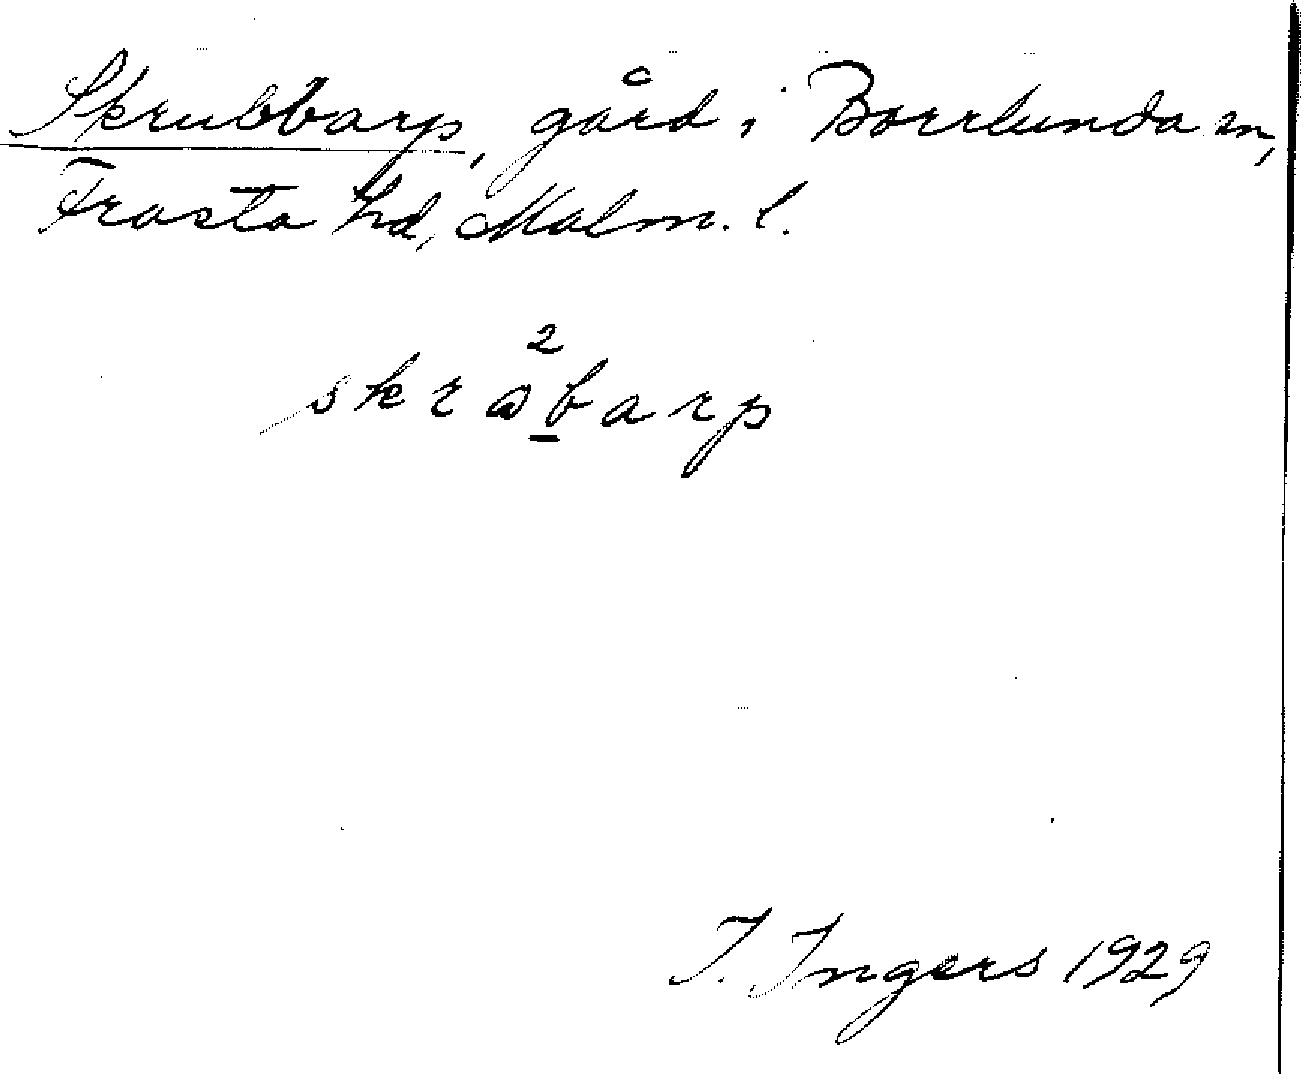 Skrubbarp, gård i Borrlunda sn,
Frosta hd, Malm. l.
2
skrabarp
I. Ingers 1929